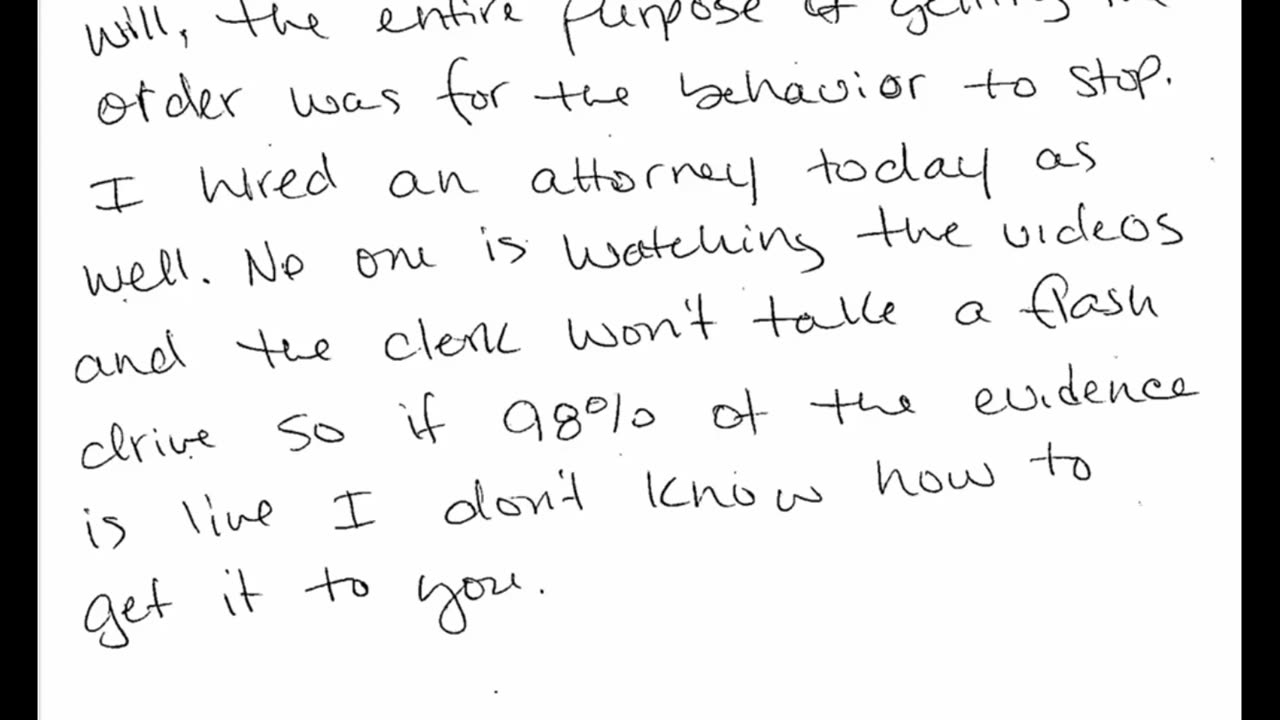 will, the entire purpose of getting
order was for the behavior to stop.
I hired an attorney today as
well. No one is watching the videos
and the clerk won't take a flash
drive so if 98% of the evidence
is live I don't know how to
get it to you.